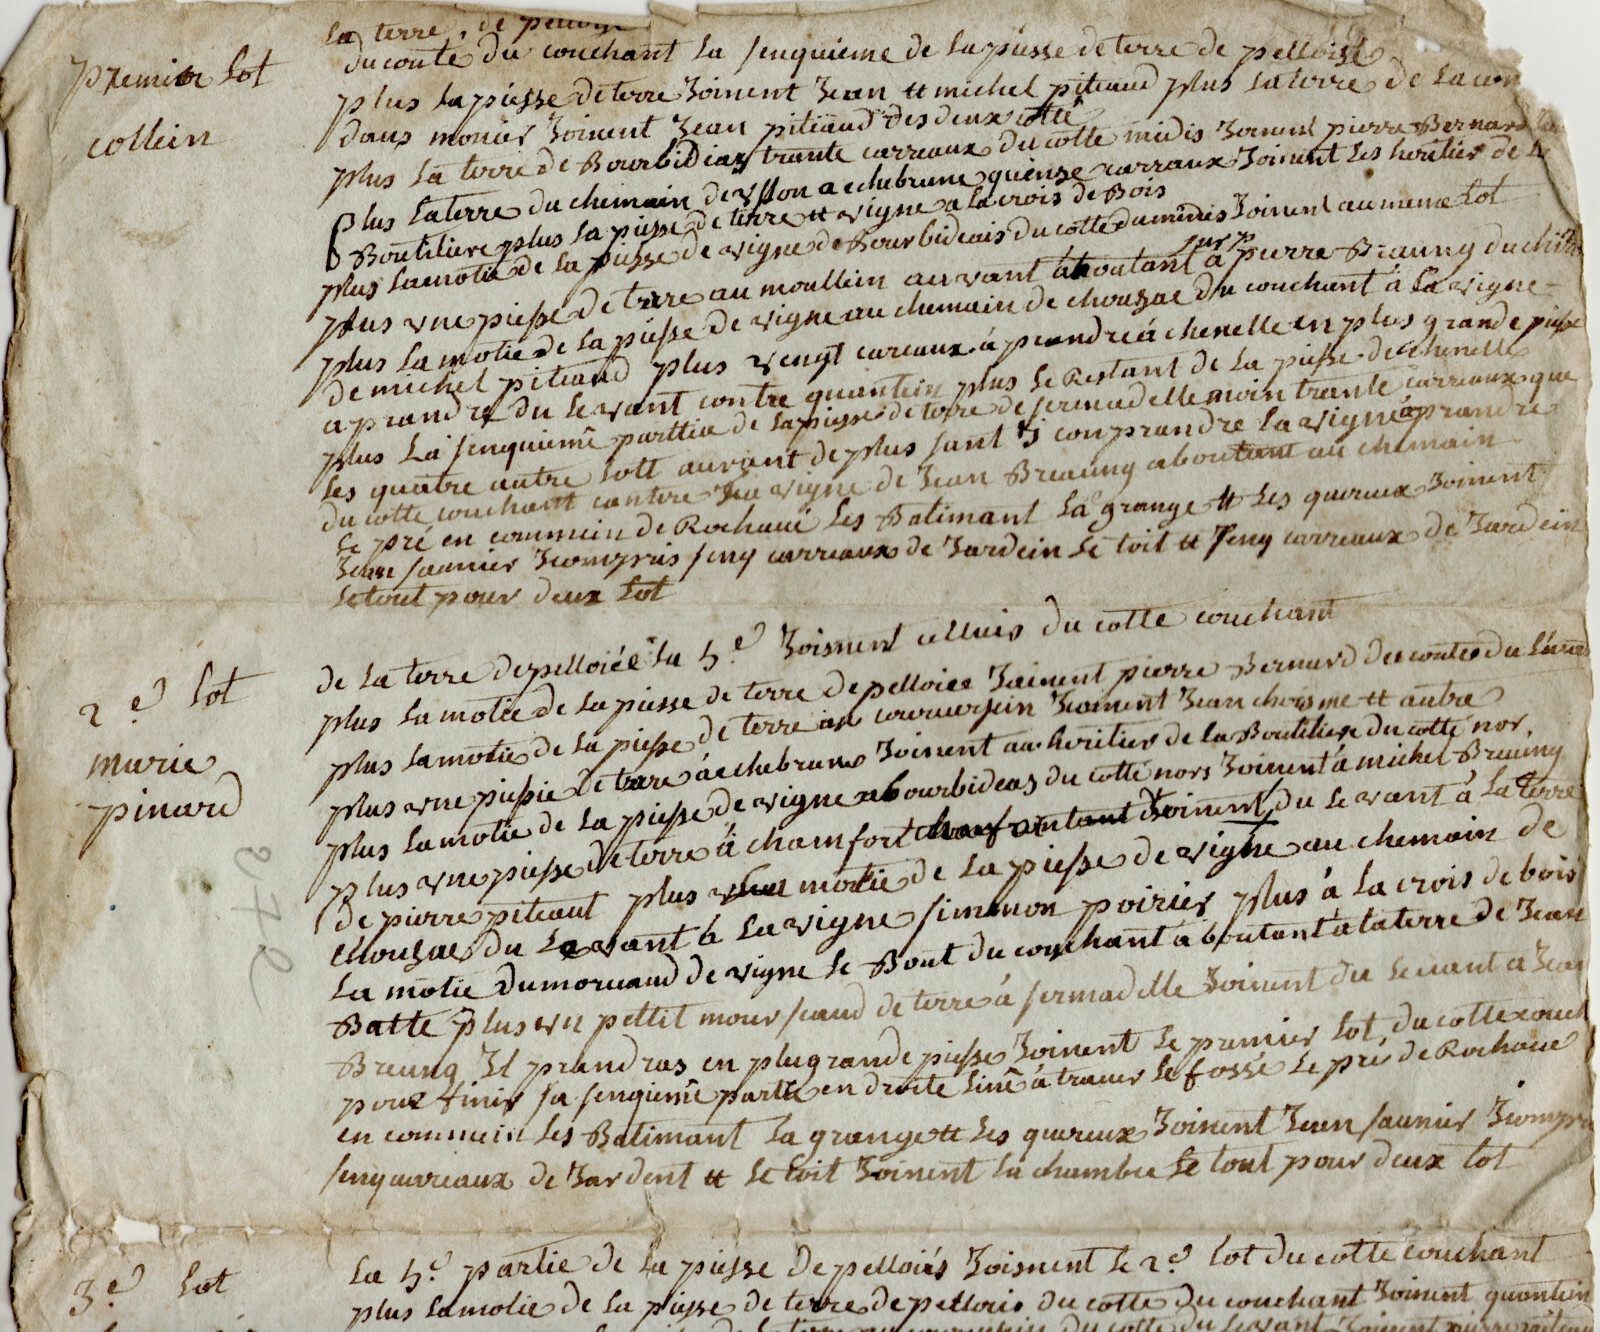 la terre, de
premier lot
du couté du couchant la senquieme de la piesse de terre de pelloisse
plus la piesse de terre Joinent Jean et michel piteaud plus la terre de la
collein
dans monier Joinent Jean piteaud des deux cotté
plus la terre de Bourbidiax trante carreaux du cotte midis Joinent pierre Bernard
plus la terre du chemain de usson a echebrune quense carraux Joinent les heritier de la
Boutiliere plus la piesse de terre et vigne a la crois de Bois
plus la motie de la piesse de vigne de Bourbideais du cotte du midis Joinent au meme lot
plus vne piesse de terre au moullein auvant aboutant sur p a pierre Braung du
plus la motie de la piesse de vigne au chemain de chouzac du couchant á la vigne
de michel piteaud plus vengt careaux á prandre á chenelle en plus grande piesse
a prandre du levant contre quantein plus le Restant de la piesse de chenelle
plus la senquieme parttie de la piesse de terre de sermadelle moin trante carreaux que
les quatre autre lott auront de plus sant y conprandre la vigne a prandre
du cotte couchant contre la vigne de Jean Breaung aboutant au chemain
le pré en commein de Rochaue les Batimant la grange et les quereux Joinent
Jean saunier Jcompris senq carreaux de Jardein le toit et senq carreaux de Jardein
le tout pour deux lot
2e lot
de la terre de pelloiée la 5e Joisnent celluis du cotte couchant
plus la motie de la piesse de terre de pelloiee Joinent pierre Bernard du coutee du
marie
plus la motie de la piesse de terre au Joinent Jean et autre
pinard
plus vne piessie de terre á echebrune Joinent au heritier de la Boutiliere du cotté nor
plus la motie de la piesse de vigne a bourbideas du cotté nors Joinent á michel Breaung
plus vne piesse de terre á chamfort Joinent du levant á la terre
de pierre piteaut plus motie de la piesse de vigne au chemain de
chouzac du levant á la vigne simmon poirier plus á la crois de bois
la motie du morceaud de vigne le Bout du couchant aboutant á la terre de Jean
Batté plus un pettit mour seaud de terre á sermadelle Joinent du levant a Jean
Breung Il prandras en plu grande piesse Joinent le premier lot du cotte
pour finir sa senqiemê partie en droite linê á traver le fossé le pré de Rochaue
en commein les Batimant la grange et les quereux Joinent Jean saunier
senq careaux de Jardent et le toit Joinent la chambre le tout pour deux lot
3e lot
la 5e partie de la piesse de pelloiés Joisnent le 2e lot du cotte couchant
plus la motie de la piesse de terre de pellois du cotte du couchant Joinent quantein